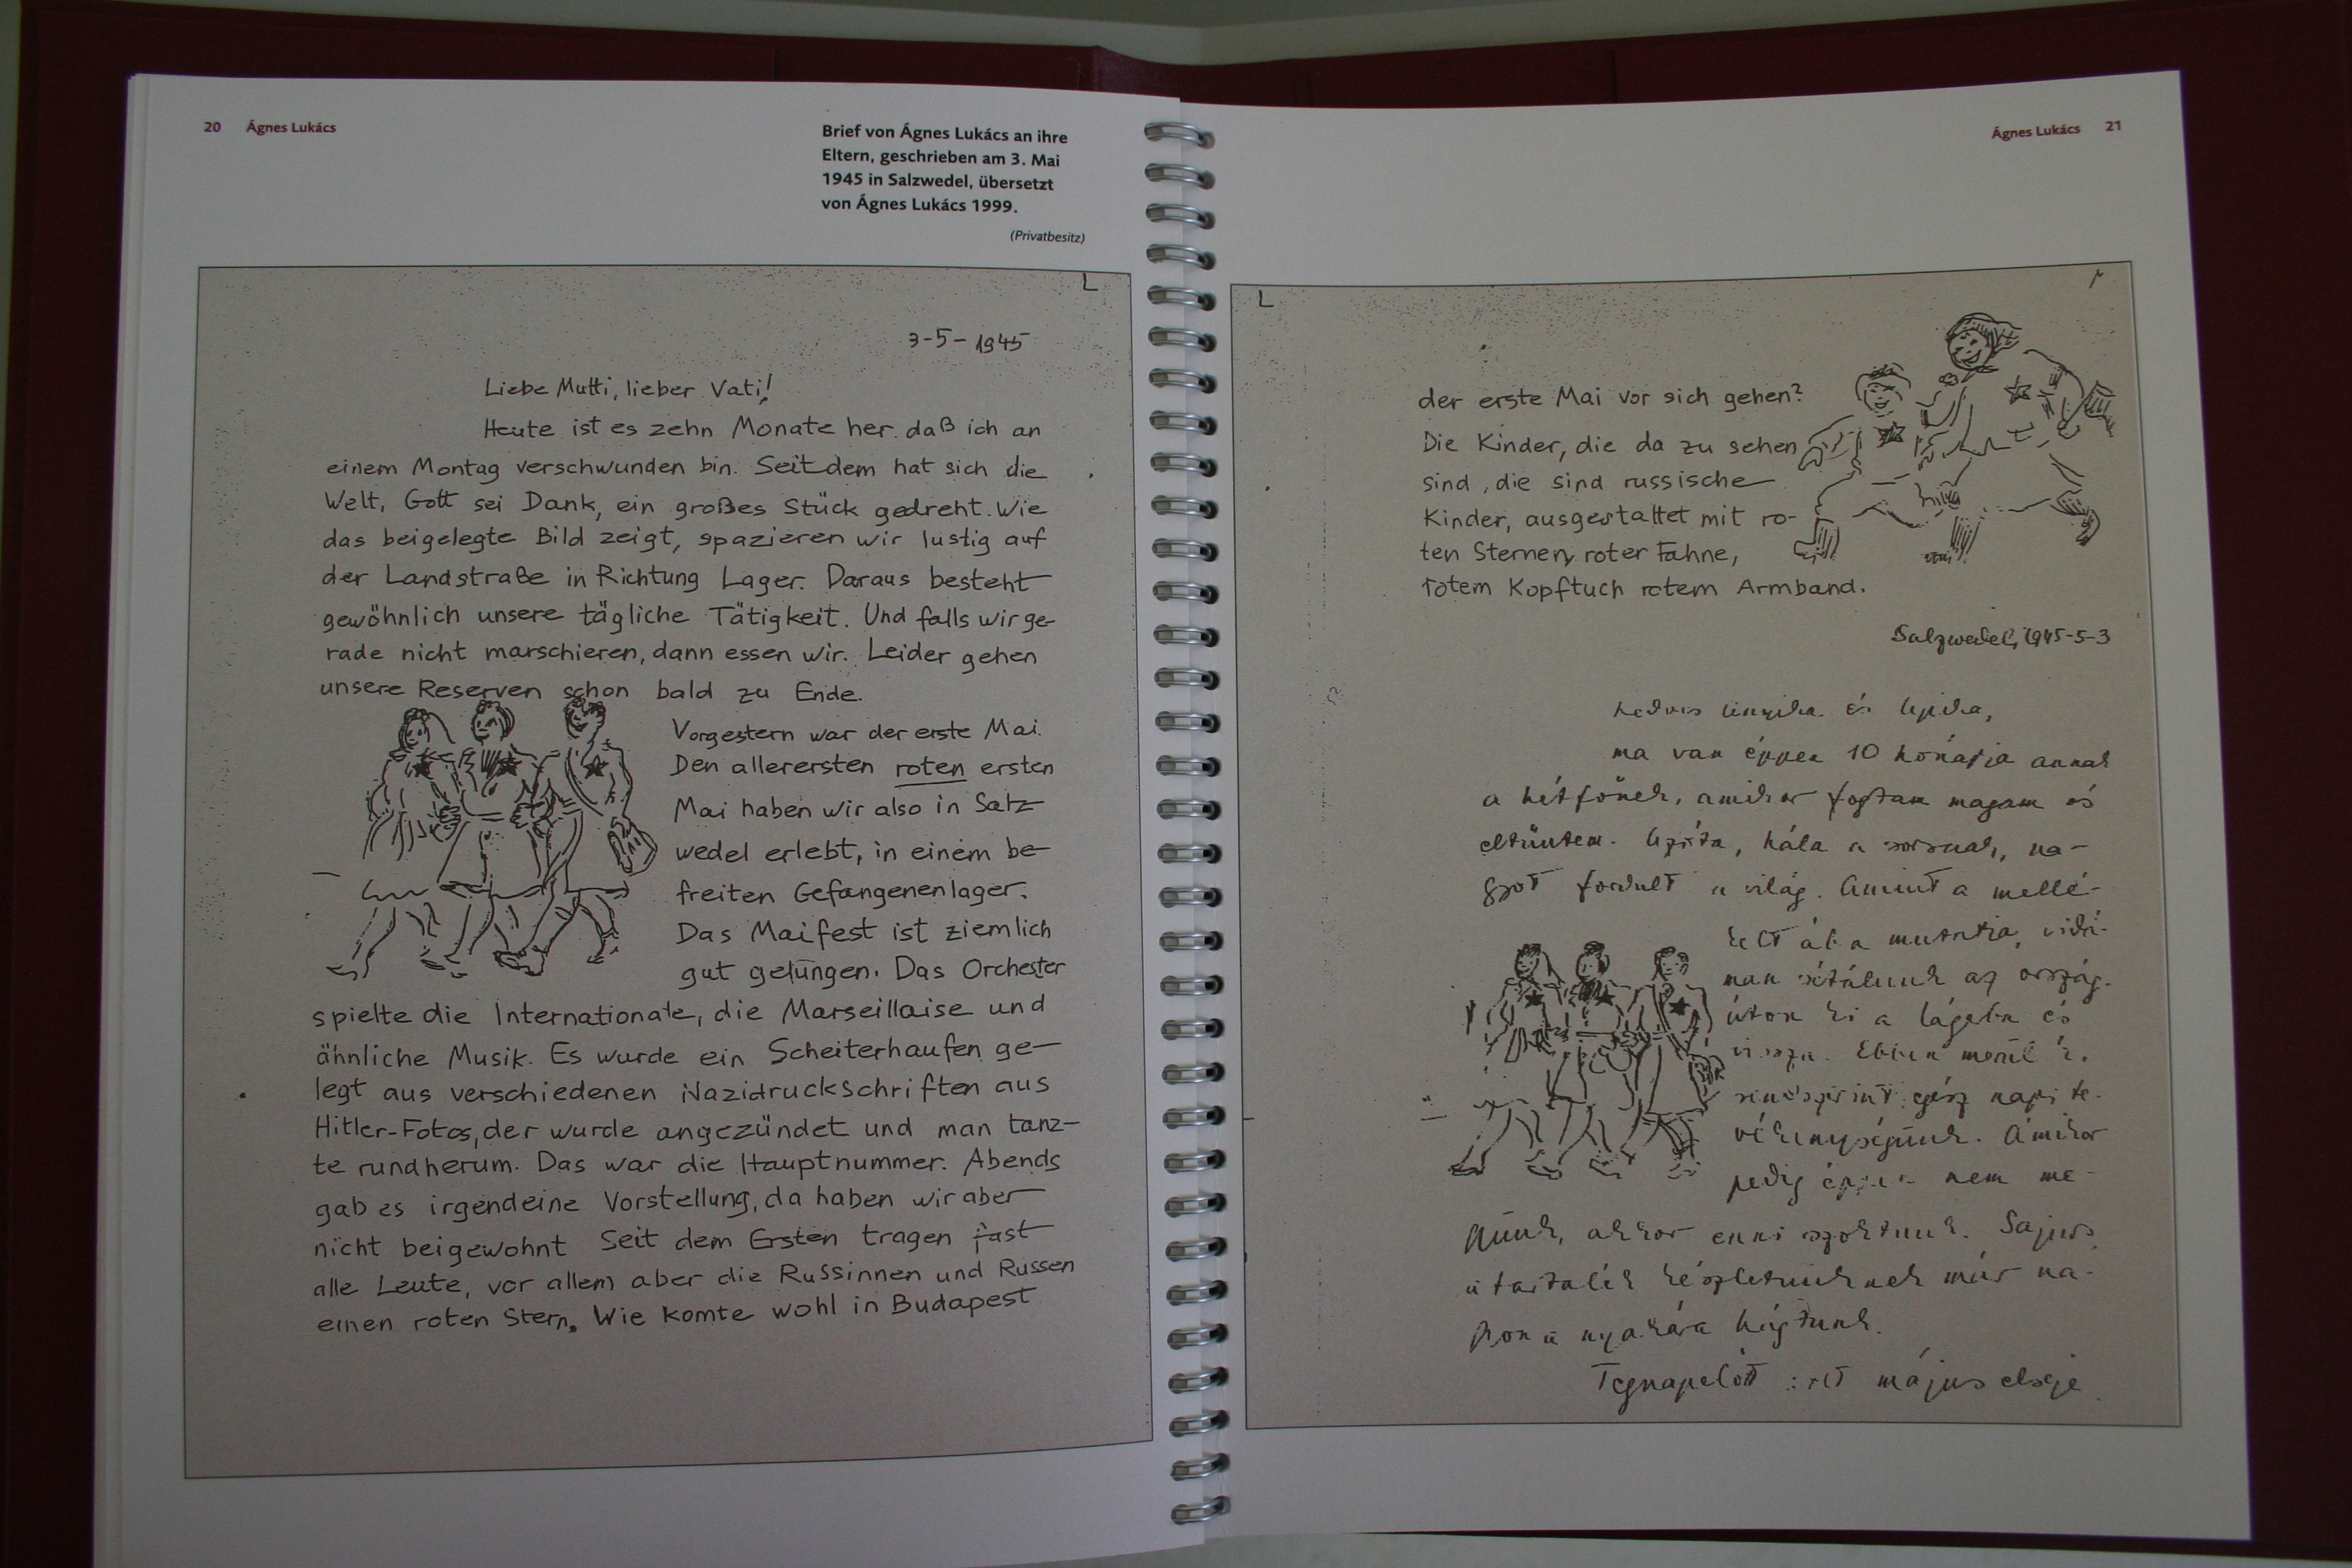 20 Ágnes Lukács
Brief von Ágnes Lukács an ihre
Eltern, geschrieben am 3. Mai
1945 in Salzwedel, übersetzt
von Ágnes Lukács 1999.
(Privatbesitz)
3-5-1945
Liebe Mutti, lieber Vati!
Heute ist es zehn Monate her. daß ich an
einem Montag verschwunden bin. Seitdem hat sich die
Welt, Gott sei Dank, ein großes Stück gedreht. Wie
das beigelegte Bild zeigt, spazieren wir lustig auf
der Landstraße in Richtung Lager. Daraus besteht
gewöhnlich unsere tägliche Tätigkeit. Und falls wir ge-
rade nicht marschieren, dann essen wir. Leider gehen
unsere Reserven schon bald zu Ende.
Vorgestern war der erste Mai.
Den allerersten roten ersten
Mai haben wir also in Salz-
wedel erlebt, in einem be-
freiten Gefangenenlager.
Das Maifest ist ziemlich
gut gelungen. Das Orchester
spielte die Internationale, die Marseillaise und
ähnliche Musik. Es wurde ein Scheiterhaufen ge-
legt aus verschiedenen Nazidruckschriften aus
Hitler-Fotos, der wurde angezündet und man tanz-
te rundherum. Das war die Hauptnummer. Abends
gab es irgendeine Vorstellung, da haben wir aber
nicht beigewohnt Seit dem Ersten tragen fast
alle Leute, vor allem aber die Russinnen und Russen
einen roten Stern. Wie komte wohl in Budapest
Ágnes Lukács 21
der erste Mai vor sich gehen?
Die Kinder, die da zu sehen
sind, die sind russische
Kinder, ausgestattet mit ro-
ten Sternen, roter Fahne,
rotem Kopftuch rotem Armband.
Salzwedel, 1945-5-3
Kedves Anyika és Apika,
ma van éppen 10 hónapja annak
a hétfőnek, amikor fogtam magam és
eltűntem. Azóta, hála a sorsnak, na-
gyot fordult a világ. Amint a mellé-
kelt ábra mutatja, vidá-
man sétálunk az ország-
úton ki a lágerba és
vissza. Ebben merül ki
egész napi te-
vékenységünk. Amikor
pedig éppen nem me-
gyünk, akkor enni szoktunk. Sajnos
a tartalék készletünknek már na-
gyon a nyakára hágtunk.
Tegnapelőtt volt május elseje